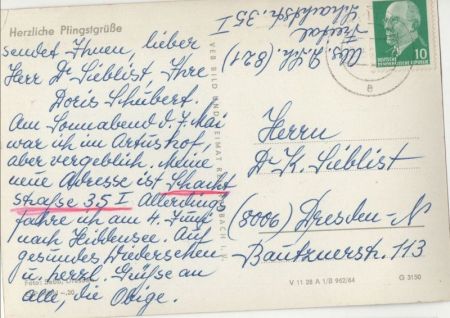 Herzliche Pfingstgrüße
sendet Ihnen, lieber
Herr Dr Lieblist Ihre
Doris Schubert.
Am Sonnabend d. 7. Mai
war ich im Artushof,
aber vergeblich. Meine
neue Adresse ist Schacht
straße 35 I Allerdings
fahre ich am 4. Juni
nach Hiddensee. Auf
gesundes Wiedersehen
u. herzl. Grüße an
alle, die Obige.
Abs. D. Sch. (821)
Freital
Schachtstr. 35 I
10
DEUTSCHE
DEMOKRATISCHE REPUBLIK
a
VEB BILD UND HEIMAT REICHENBACH I. V.
Herrn
Dr K. Lieblist
(8006) Dresden-N
Bautznerstr. 113
V 11 28 A 1/B 962/64
G 3150